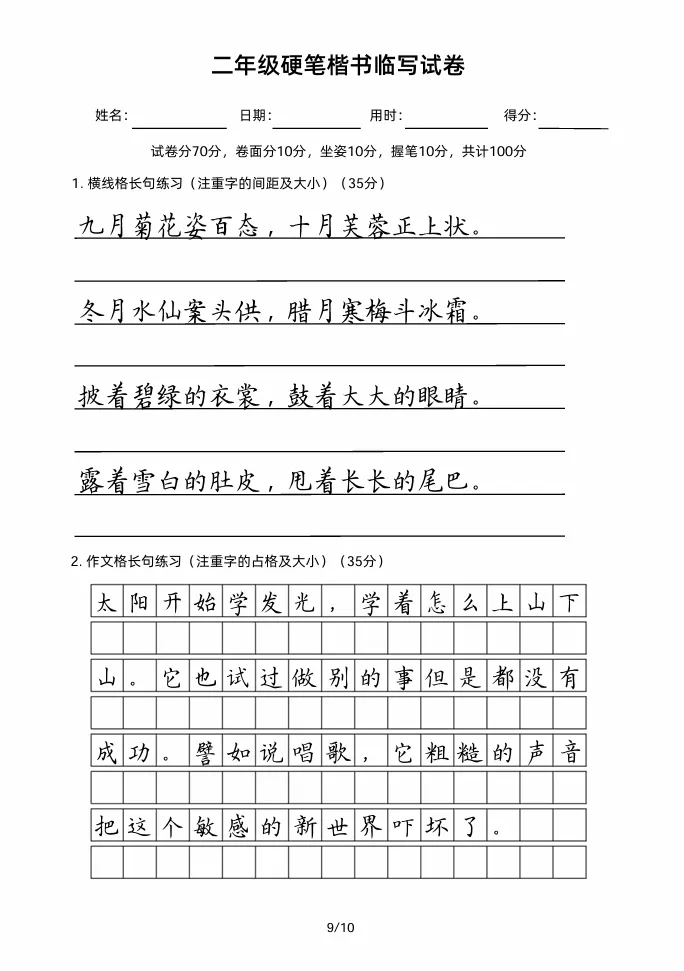 二年级硬笔楷书临写试卷
姓名： 日期： 用时： 得分：
试卷分70分，卷面分10分，坐姿10分，握笔10分，共计100分
1. 横线格长句练习（注重字的间距及大小）（35分）
九月菊花姿百态，十月芙蓉正上状。
冬月水仙案头供，腊月寒梅斗冰霜。
披着碧绿的衣裳，鼓着大大的眼睛。
露着雪白的肚皮，甩着长长的尾巴。
2. 作文格长句练习（注重字的占格及大小）（35分）
太阳开始学发光，学着怎么上山下
山。它也试过做别的事但是都没有
成功。譬如说唱歌，它粗糙的声音
把这个敏感的新世界吓坏了。
9/10